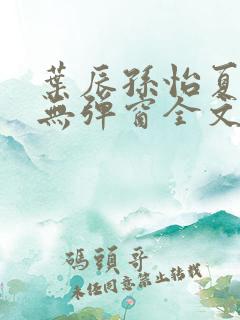 葉辰孫怡夏
無彈窗全文
碼頭哥
未經同意禁止轉載